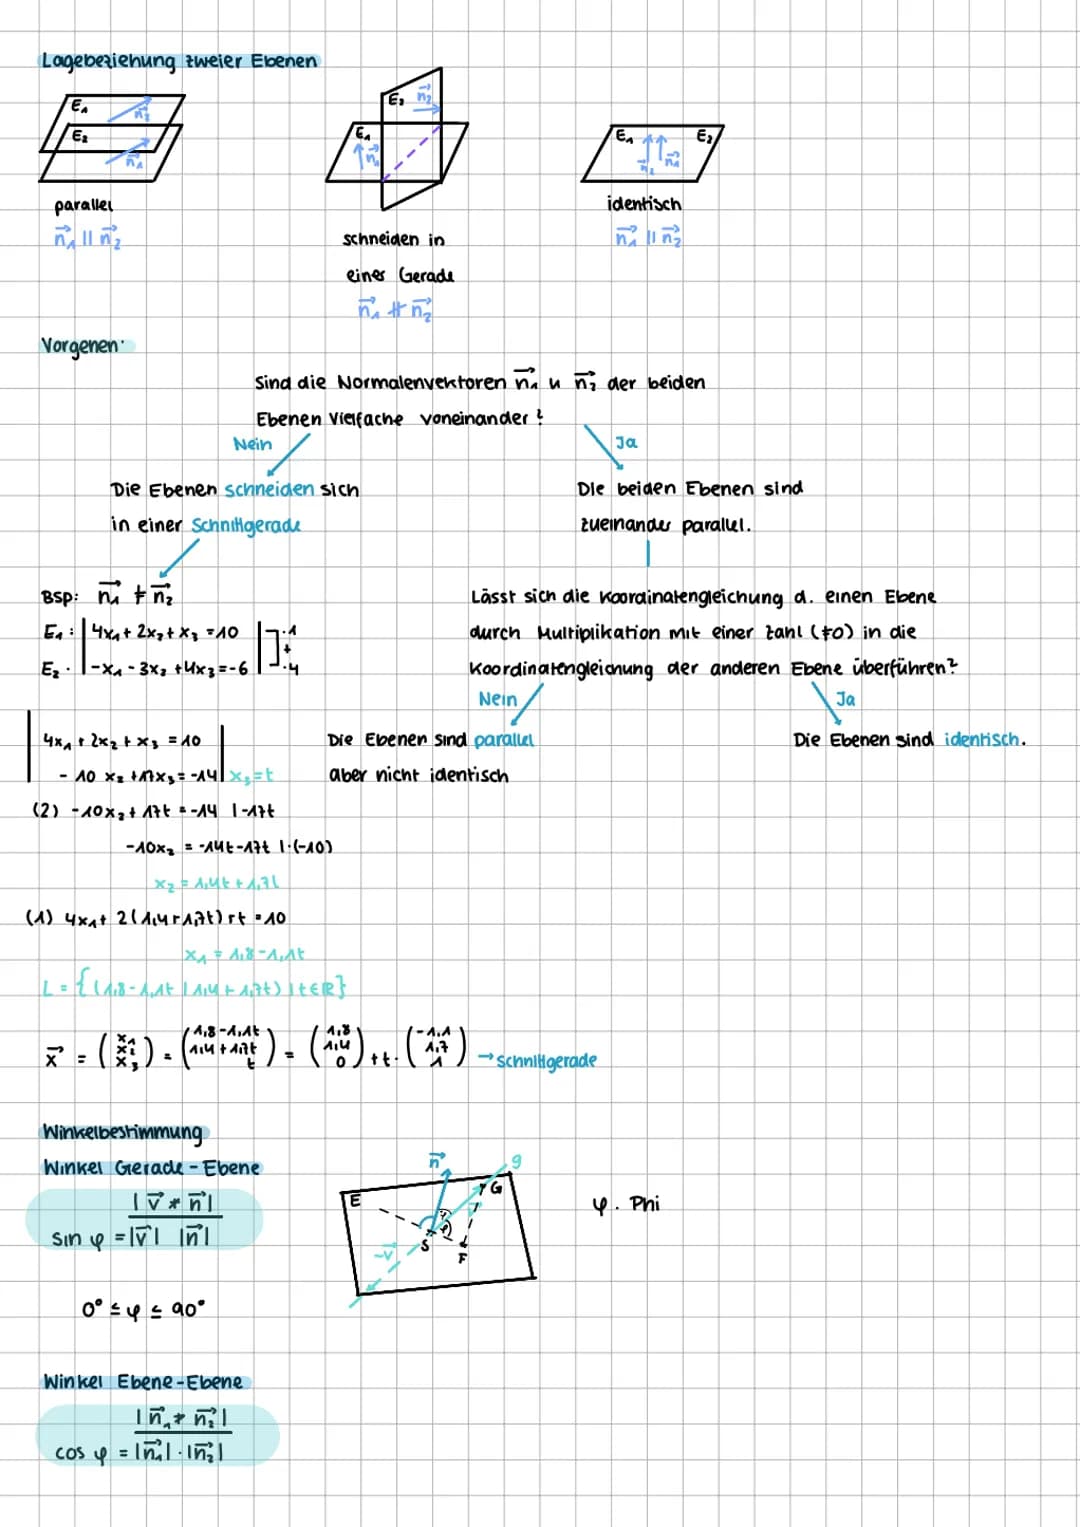 Lagebeziehung zweier Ebenen
E₁ n₂⃗
E₂ n₁⃗
E₂ n₂⃗
E₁ n₁⃗
E₁ E₂
n₂⃗ n₁⃗
parallel
n₁⃗ || n₂⃗
schneiden in
einer Gerade
n₁⃗ ∦ n₂⃗
identisch
n₁⃗ || n₂⃗
Vorgehen:
Sind die Normalenvektoren n₁⃗ u n₂⃗ der beiden
Ebenen Vielfache voneinander?
Nein
Ja
Die Ebenen schneiden sich
in einer Schnittgerade
Die beiden Ebenen sind
zueinander parallel.
Bsp: n₁⃗ ≠ n₂⃗
E₁: | 4x₁ + 2x₂ + x₃ = 10 | ·1
+
E₂: | -x₁ - 3x₂ + 4x₃ = -6 | ·4
Lässt sich die Koordinatengleichung d. einen Ebene
durch Multiplikation mit einer Zahl (≠0) in die
Koordinatengleichung der anderen Ebene überführen?
Nein
Ja
Die Ebenen sind parallel
aber nicht identisch
Die Ebenen sind identisch.
| 4x₁ + 2x₂ + x₃ = 10 |
| - 10x₂ + 17x₃ = -14 | x₃=t
(2) -10x₂ + 17t = -14 | -17t
-10x₂ = -14t-17t | :(-10)
x₂ = 1,4t + 1,7t
(1) 4x₁ + 2(1,4+1,7t) + t = 10
x₁ = 1,8 - 1,1t
L = {(1,8 - 1,1t | 1,4 + 1,7t) | t∈ℝ}
x⃗ = (x₁ x₂ x₃) = (1,8-1,1t 1,4+1,7t t) = (1,8 1,4 0) + t · (-1,1 1,7 1) → Schnittgerade
Winkelbestimmung
Winkel Gerade - Ebene
sin φ = |v⃗ * n⃗| / |v⃗| |n⃗|
0° ≤ φ ≤ 90°
n⃗ g
E G
v⃗
φ
S F
-v⃗
φ: Phi
Winkel Ebene-Ebene
cos φ = |n₁⃗ * n₂⃗| / |n₁⃗| · |n₂⃗|